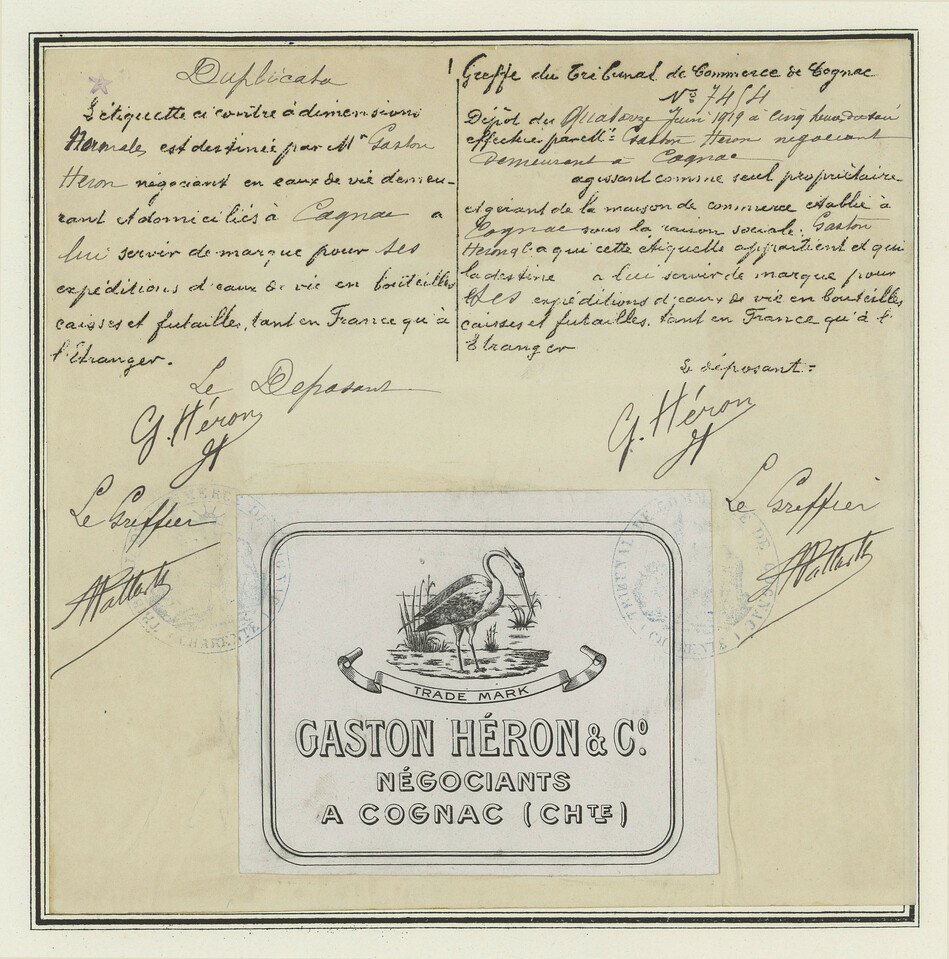 Duplicata
L'étiquette ci contre à dimensions
Normales est destinée par Mr Gaston
Héron négociant en eaux de vie demeu-
rant & domiciliés à Cognac a
lui servir de marque pour ses
expéditions d'eaux de vie en bouteilles
caisses et futailles, tant en France qu'à
l'étranger.
Le Déposant
G. Héron
Le Greffier
Greffe du Tribunal de Commerce de Cognac
No 7454
Dépôt du Quatorze Juin 1919 à cinq heures du soir
effectué par Mr Gaston Héron négociant
Demeurant à Cognac
agissant comme seul propriétaire
et gérant de la maison de commerce établie à
Cognac sous la raison sociale: Gaston
Héron & Co a qui cette étiquette appartient et qui
la destine a lui servir de marque pour
ses expéditions d'eaux de vie en bouteilles
caisses et futailles. tant en France qu'à l'
Etranger
Le déposant =
G. Héron
Le Greffier
TRIBUNAL DE COMMERCE DE COGNAC
CHARENTE
TRADE MARK
GASTON HÉRON & Co.
NÉGOCIANTS
A COGNAC (CHTE)